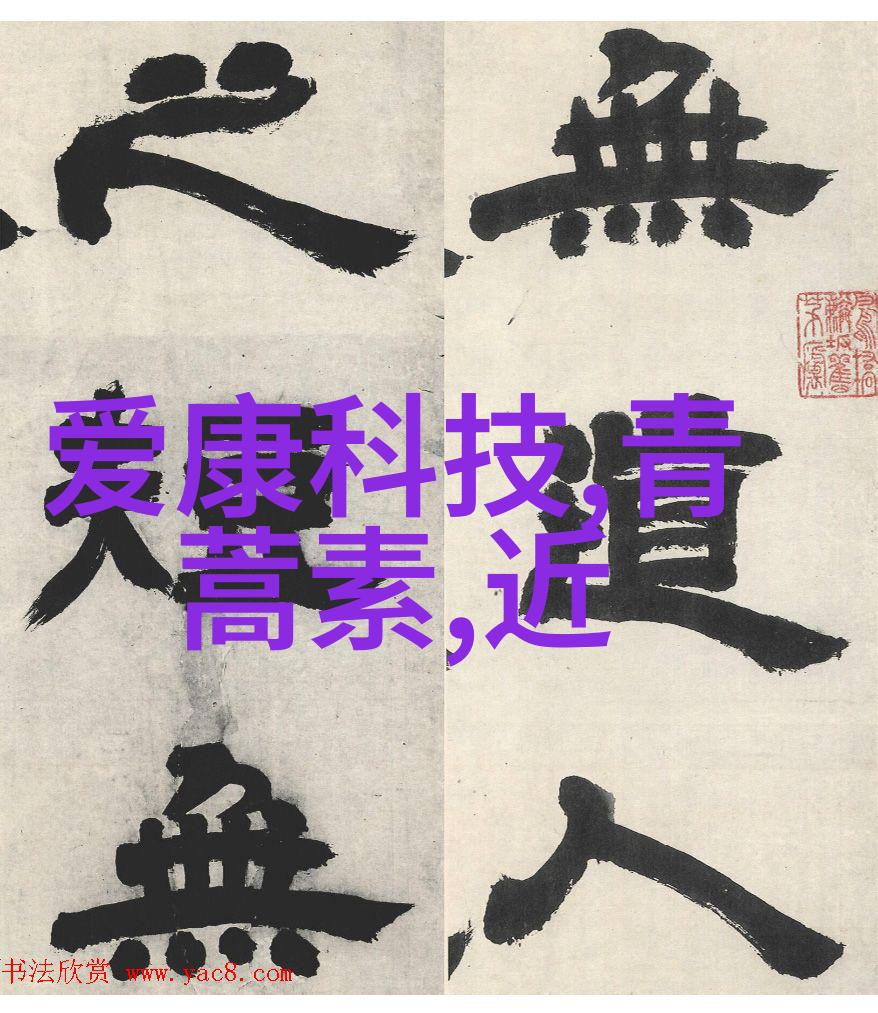 無
人
之
無
爱康科技,青
蒿素,近
书法欣赏 www.yac8.com